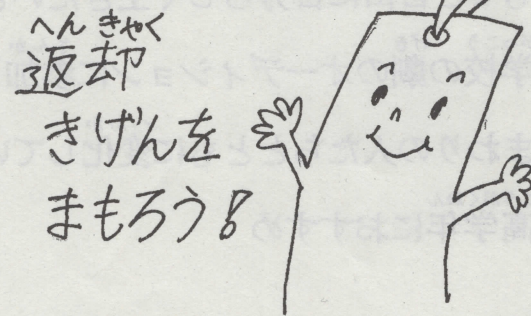 へんきゃく
返却
きげんを
まもろう!